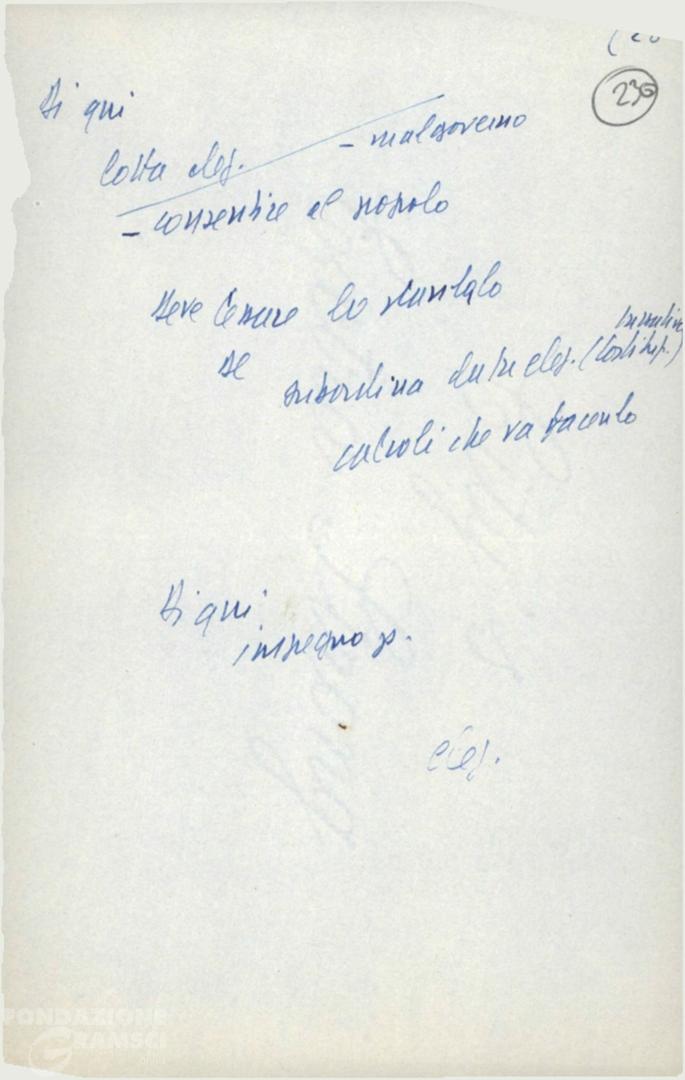 236
Di qui
lotta elez. - malgoverno
- consentire al popolo
Deve cessare lo scandalo
DC
subordina date elez. (
calcoli che va facendo
Di qui
impegno p.
elez.
FONDAZIONE
GRAMSCI